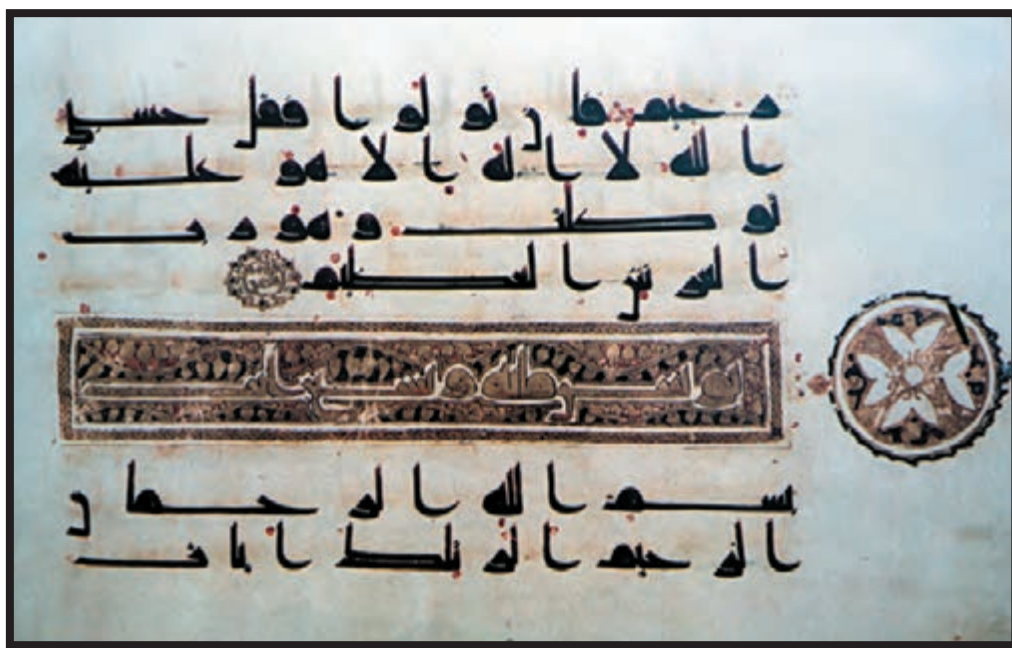 رحيم فان تولوا فقل حسبي
الله لا اله الا هو عليه
توكلت و هو رب
العرش العظيم
يونس مائة و تسع ايات
بسم الله الرحمن
الرحيم الر تلك ايات